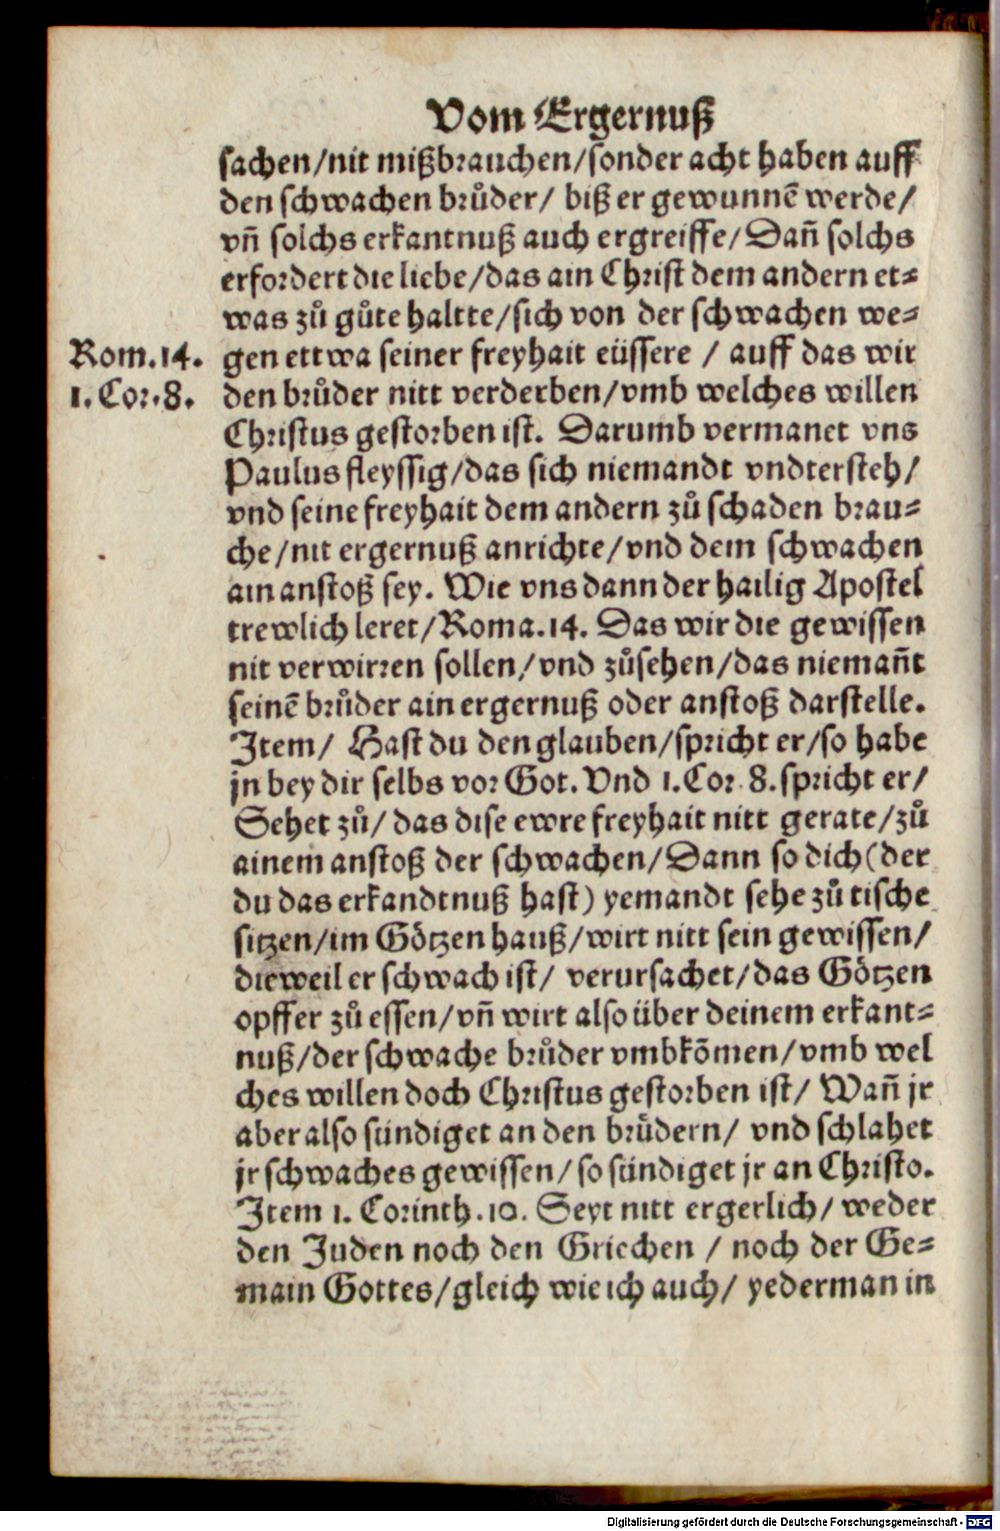 Vom Ergernuß
sachen/nit mißbrauchen/sonder acht haben auff
den schwachen brůder/ biß er gewunnē werde/
vñ solchs erkantnuß auch ergreiffe/Dañ solchs
erfordert die liebe/das ain Christ dem andern et⸗
was zů gůte haltte/sich von der schwachen we⸗
Rom.14. gen ettwa seiner freyhait eüssere / auff das wir
1.Cor.8. den brůder nitt verderben/vmb welches willen
Christus gestorben ist. Darumb vermanet vns
Paulus fleyssig/das sich niemandt vndtersteh/
vnd seine freyhait dem andern zů schaden brau⸗
che/nit ergernuß anrichte/vnd dem schwachen
ain anstoß sey. Wie vns dann der hailig Apostel
trewlich leret/Roma.14. Das wir die gewissen
nit verwirren sollen/vnd zůsehen/das niemañt
seinē brůder ain ergernuß oder anstoß darstelle.
Item/ Hast du den glauben/spricht er/so habe
jn bey dir selbs vor Got. Vnd 1.Cor.8.spricht er/
Sehet zů/ das dise ewre freyhait nitt gerate/zů
ainem anstoß der schwachen/Dann so dich(der
du das erkandtnuß hast) yemandt sehe zů tische
sitzen/im Götzen hauß/wirt nitt sein gewissen/
dieweil er schwach ist/ verursachet/das Götzen
opffer zů essen/vñ wirt also über deinem erkant⸗
nuß/der schwache brůder vmbkõmen/vmb wel
ches willen doch Christus gestorben ist/ Wañ jr
aber also sündiget an den brůdern/ vnd schlahet
jr schwaches gewissen/so sündiget jr an Christo.
Item 1. Corinth.10. Seyt nitt ergerlich/ weder
den Juden noch den Griechen / noch der Ge⸗
main Gottes/gleich wie ich auch/ yederman in
Digitalisierung gefördert durch die Deutsche Forschungsgemeinschaft - DFG